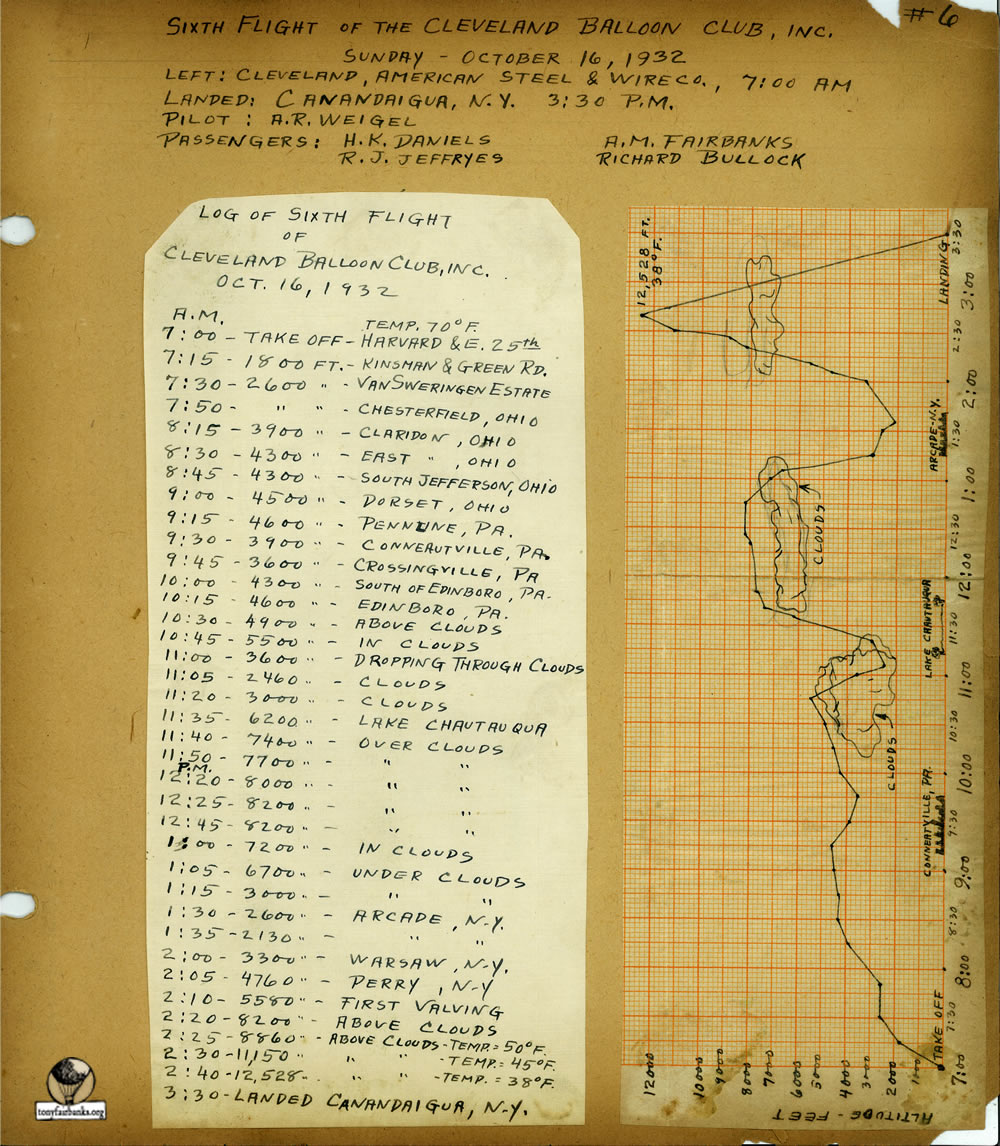 #6
SIXTH FLIGHT OF THE CLEVELAND BALLOON CLUB, INC.
SUNDAY - OCTOBER 16, 1932
LEFT: CLEVELAND, AMERICAN STEEL & WIRE CO., 7:00 AM
LANDED: CANANDAIGUA, N.Y. 3:30 P.M.
PILOT: A.R. WEIGEL
PASSENGERS: H.K. DANIELS A.M. FAIRBANKS
R.J. JEFFRYES RICHARD BULLOCK
LOG OF SIXTH FLIGHT
OF
CLEVELAND BALLOON CLUB, INC.
OCT. 16, 1932
A.M. TEMP. 70°F.
7:00 - TAKE OFF - HARVARD & E. 25th
7:15 - 1800 FT. - KINSMAN & GREEN RD.
7:30 - 2600 " - VAN SWERINGEN ESTATE
7:50 - " " - CHESTERFIELD, OHIO
8:15 - 3900 " - CLARIDON, OHIO
8:30 - 4300 " - EAST " , OHIO
8:45 - 4300 " - SOUTH JEFFERSON, OHIO
9:00 - 4500 " - DORSET, OHIO
9:15 - 4600 " - PENNLINE, PA.
9:30 - 3900 " - CONNEAUTVILLE, PA.
9:45 - 3600 " - CROSSINGVILLE, PA
10:00 - 4300 " - SOUTH OF EDINBORO, PA.
10:15 4600 " - EDINBORO, PA.
10:30 - 4900 " - ABOVE CLOUDS
10:45 - 5500 " - IN CLOUDS
11:00 - 3600 " - DROPPING THROUGH CLOUDS
11:05 - 2460 " - CLOUDS
11:20 - 3000 " - CLOUDS
11:35 - 6200 " - LAKE CHAUTAUQUA
11:40 - 7400 " - OVER CLOUDS
11:50 - 7700 " - " "
P.M.
12:20 - 8000 " - " "
12:25 - 8200 " - " "
12:45 - 8200 " - " "
1:00 - 7200 " - IN CLOUDS
1:05 - 6700 " - UNDER CLOUDS
1:15 - 3000 " - " "
1:30 - 2600 " - ARCADE, N.Y.
1:35 - 2130 " - " "
2:00 - 3300 " - WARSAW, N.Y.
2:05 - 4760 " - PERRY, N.Y
2:10 - 5580 " - FIRST VALVING
2:20 - 8200 " - ABOVE CLOUDS
2:25 - 8860 " - ABOVE CLOUDS - TEMP. = 50°F.
2:30 - 11,150 " " " - TEMP. = 45°F.
2:40 - 12,528 " " " - TEMP. = 38°F.
3:30 - LANDED CANANDAIGUA, N.Y.
12,528 FT.
38°F.
ALTITUDE - FEET
12000
10000
9000
8000
7000
6000
5000
4000
3000
2000
1000
TAKE OFF
CONNEATVILLE, PA.
LAKE CHAUTAUQUA
ARCADE - N.Y.
LANDING
CLOUDS
CLOUDS
7:00
7:30
8:00
8:30
9:00
9:30
10:00
10:30
11:00
11:30
12:00
12:30
1:00
1:30
2:00
2:30
3:00
3:30
tonyfairbanks.org